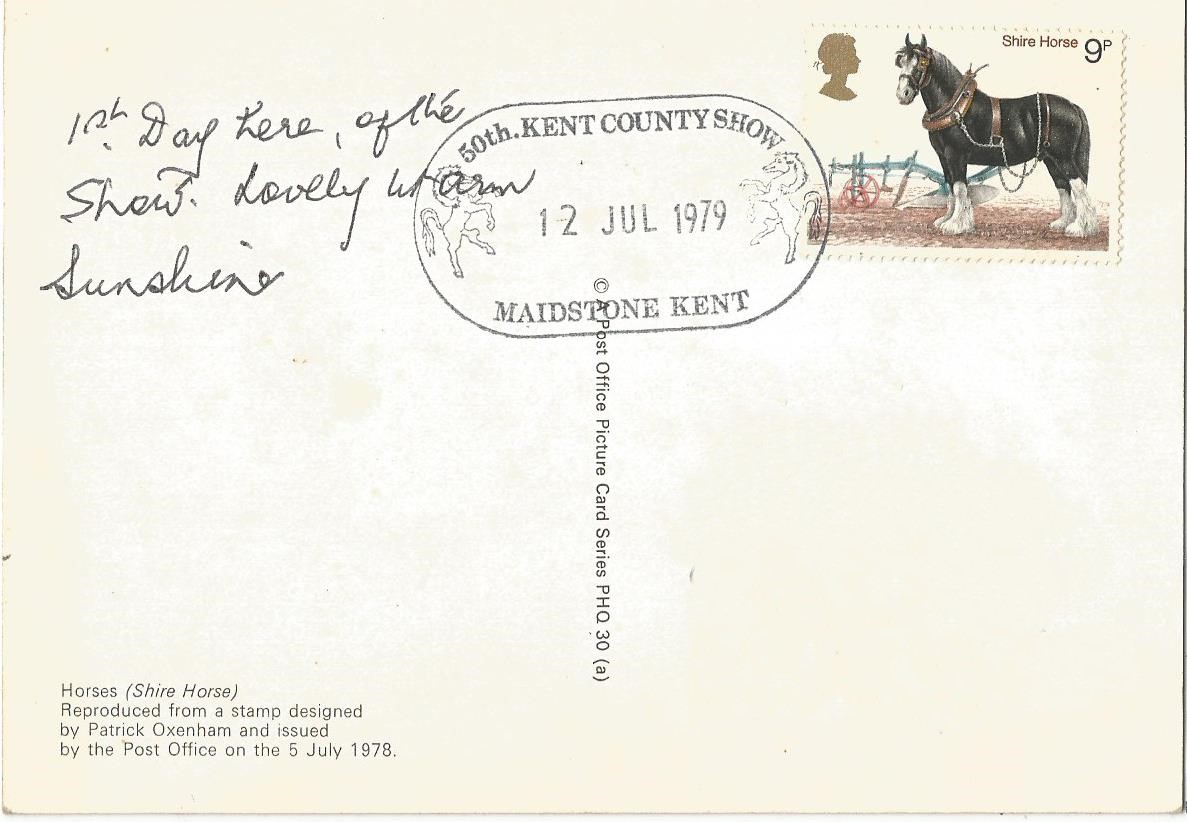 Shire Horse 9P
1st Day here, of the
Show. Lovely warm
Sunshine
50th. KENT COUNTY SHOW
12 JUL 1979
MAIDSTONE KENT
© A Post Office Picture Card Series PHQ 30 (a)
Horses (Shire Horse)
Reproduced from a stamp designed
by Patrick Oxenham and issued
by the Post Office on the 5 July 1978.